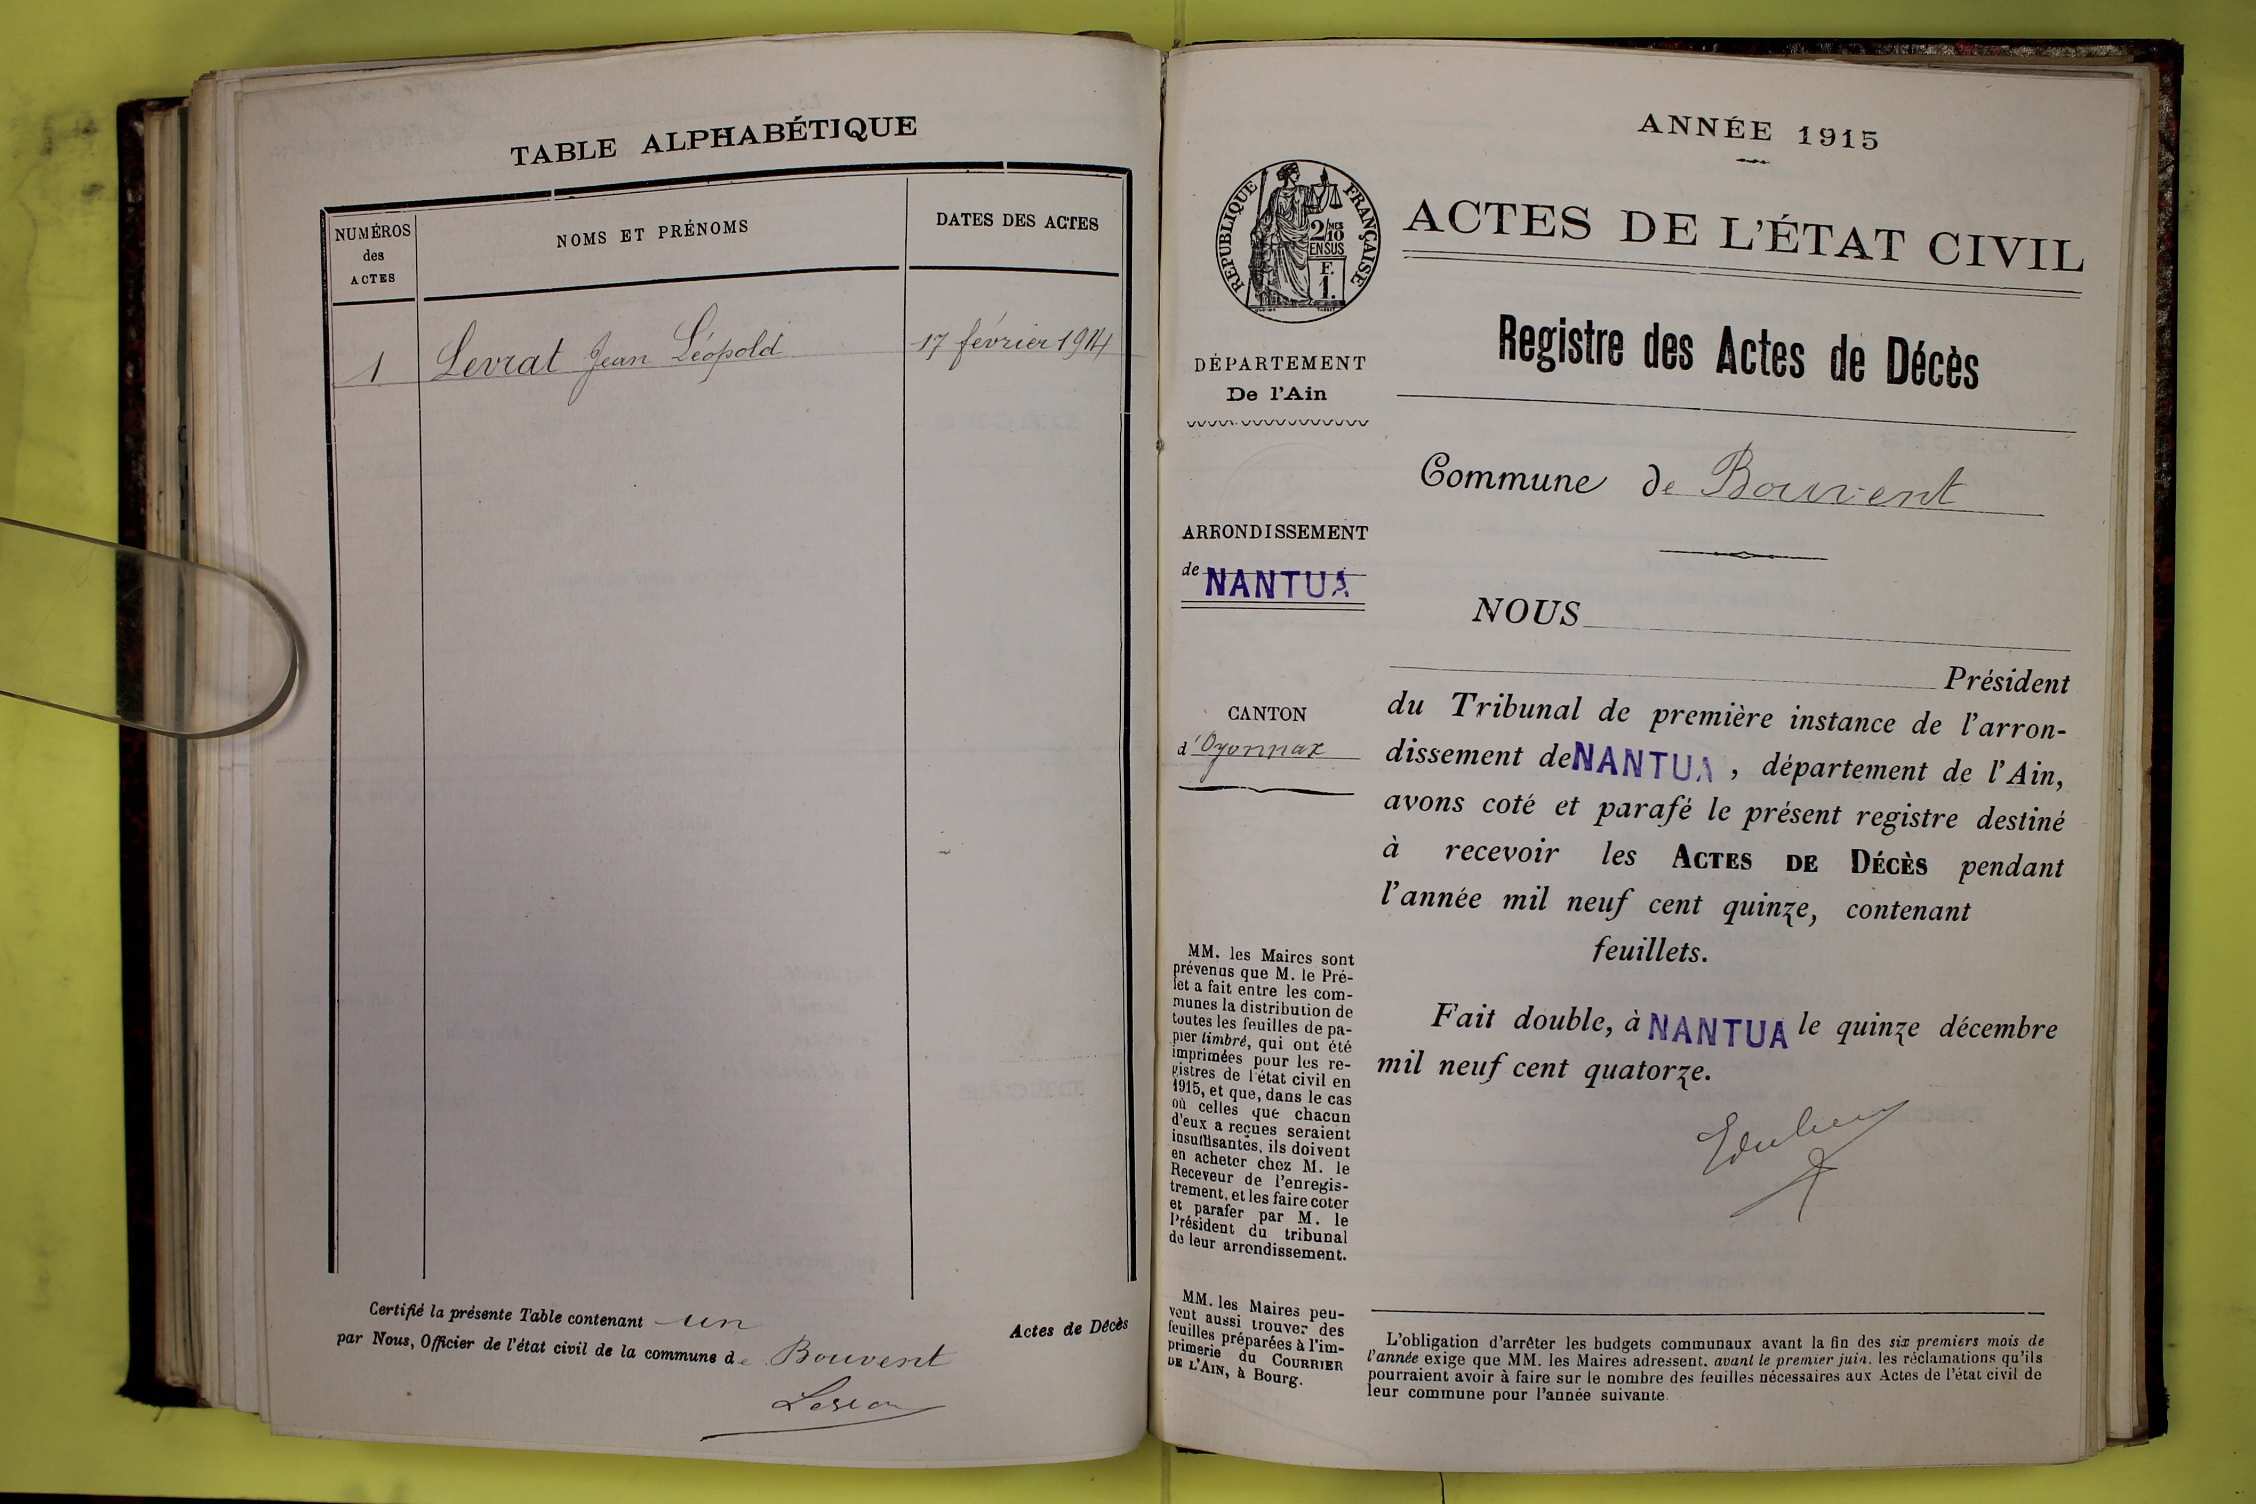 TABLE ALPHABÉTIQUE
NUMÉROS
des
ACTES
NOMS ET PRÉNOMS
DATES DES ACTES
1 Levrat Jean Léopold 17 février 1914
Certifié la présente Table contenant un Actes de Décès
par Nous, Officier de l'état civil de la commune de Bouvent
ANNÉE 1915
RÉPUBLIQUE FRANÇAISE
2/10 MES
EN SUS
F.
1.
ACTES DE L'ÉTAT CIVIL
Registre des Actes de Décès
DÉPARTEMENT
De l'Ain
Commune de Bouvent
ARRONDISSEMENT
de NANTUA
CANTON
d'Oyonnax
NOUS
Président
du Tribunal de première instance de l'arron-
dissement de NANTUA, département de l'Ain,
avons coté et parafé le présent registre destiné
à recevoir les ACTES DE DÉCÈS pendant
l'année mil neuf cent quinze, contenant
feuillets.
Fait double, à NANTUA le quinze décembre
mil neuf cent quatorze.
MM. les Maires sont
prévenus que M. le Pré-
fet a fait entre les com-
munes la distribution de
toutes les feuilles de pa-
pier timbré, qui ont été
imprimées pour les re-
gistres de l'état civil en
1915, et que, dans le cas
où celles que chacun
d'eux a reçues seraient
insuffisantes, ils doivent
en acheter chez M. le
Receveur de l'enregis-
trement, et les faire coter
et parafer par M. le
Président du tribunal
de leur arrondissement.
MM. les Maires peu-
vent aussi trouver des
feuilles préparées à l'im-
primerie du COURRIER
DE L'AIN, à Bourg.
L'obligation d'arrêter les budgets communaux avant la fin des six premiers mois de
l'année exige que MM. les Maires adressent, avant le premier juin, les réclamations qu'ils
pourraient avoir à faire sur le nombre des feuilles nécessaires aux Actes de l'état civil de
leur commune pour l'année suivante.